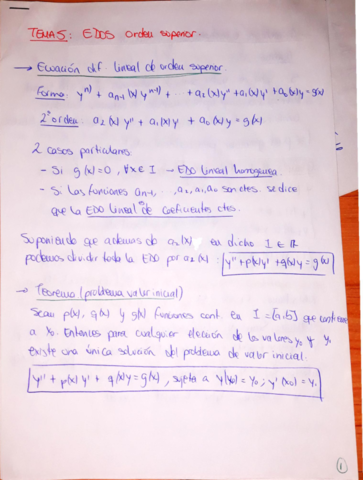 TEMA 5: EDOS orden superior.
→ Ecuación dif. lineal de orden superior.
Forma: y^n) + a_{n-1}(x) y^{n-1)} + ... + a_2(x)y'' + a_1(x)y' + a_0(x)y = g(x)
2º orden: a_2(x)y'' + a_1(x)y + a_0(x)y = g(x)
2 casos particulares:
- Si g(x)=0, ∀x∈I → EDO lineal homogénea.
- Si las funciones a_{n-1}, ..., a_2, a_1, a_0 son ctes. se dice
que la EDO lineal es de coeficientes ctes.
Suponiendo que además de a_2(x) en dicho I ∈ ℝ
podemos dividir toda la EDO por a_2(x): y'' + p(x)y' + q(x)y = g(x)
→ Teorema (problema valor inicial)
Sean p(x), q(x) y g(x) funciones cont. en I = [a,b] que contiene
a x_0. Entonces para cualquier elección de los valores y_0 y y_1
existe una única solución del problema de valor inicial.
y'' + p(x)y' + q(x)y = g(x), sujeta a y(x_0) = y_0; y'(x_0) = y_1
1